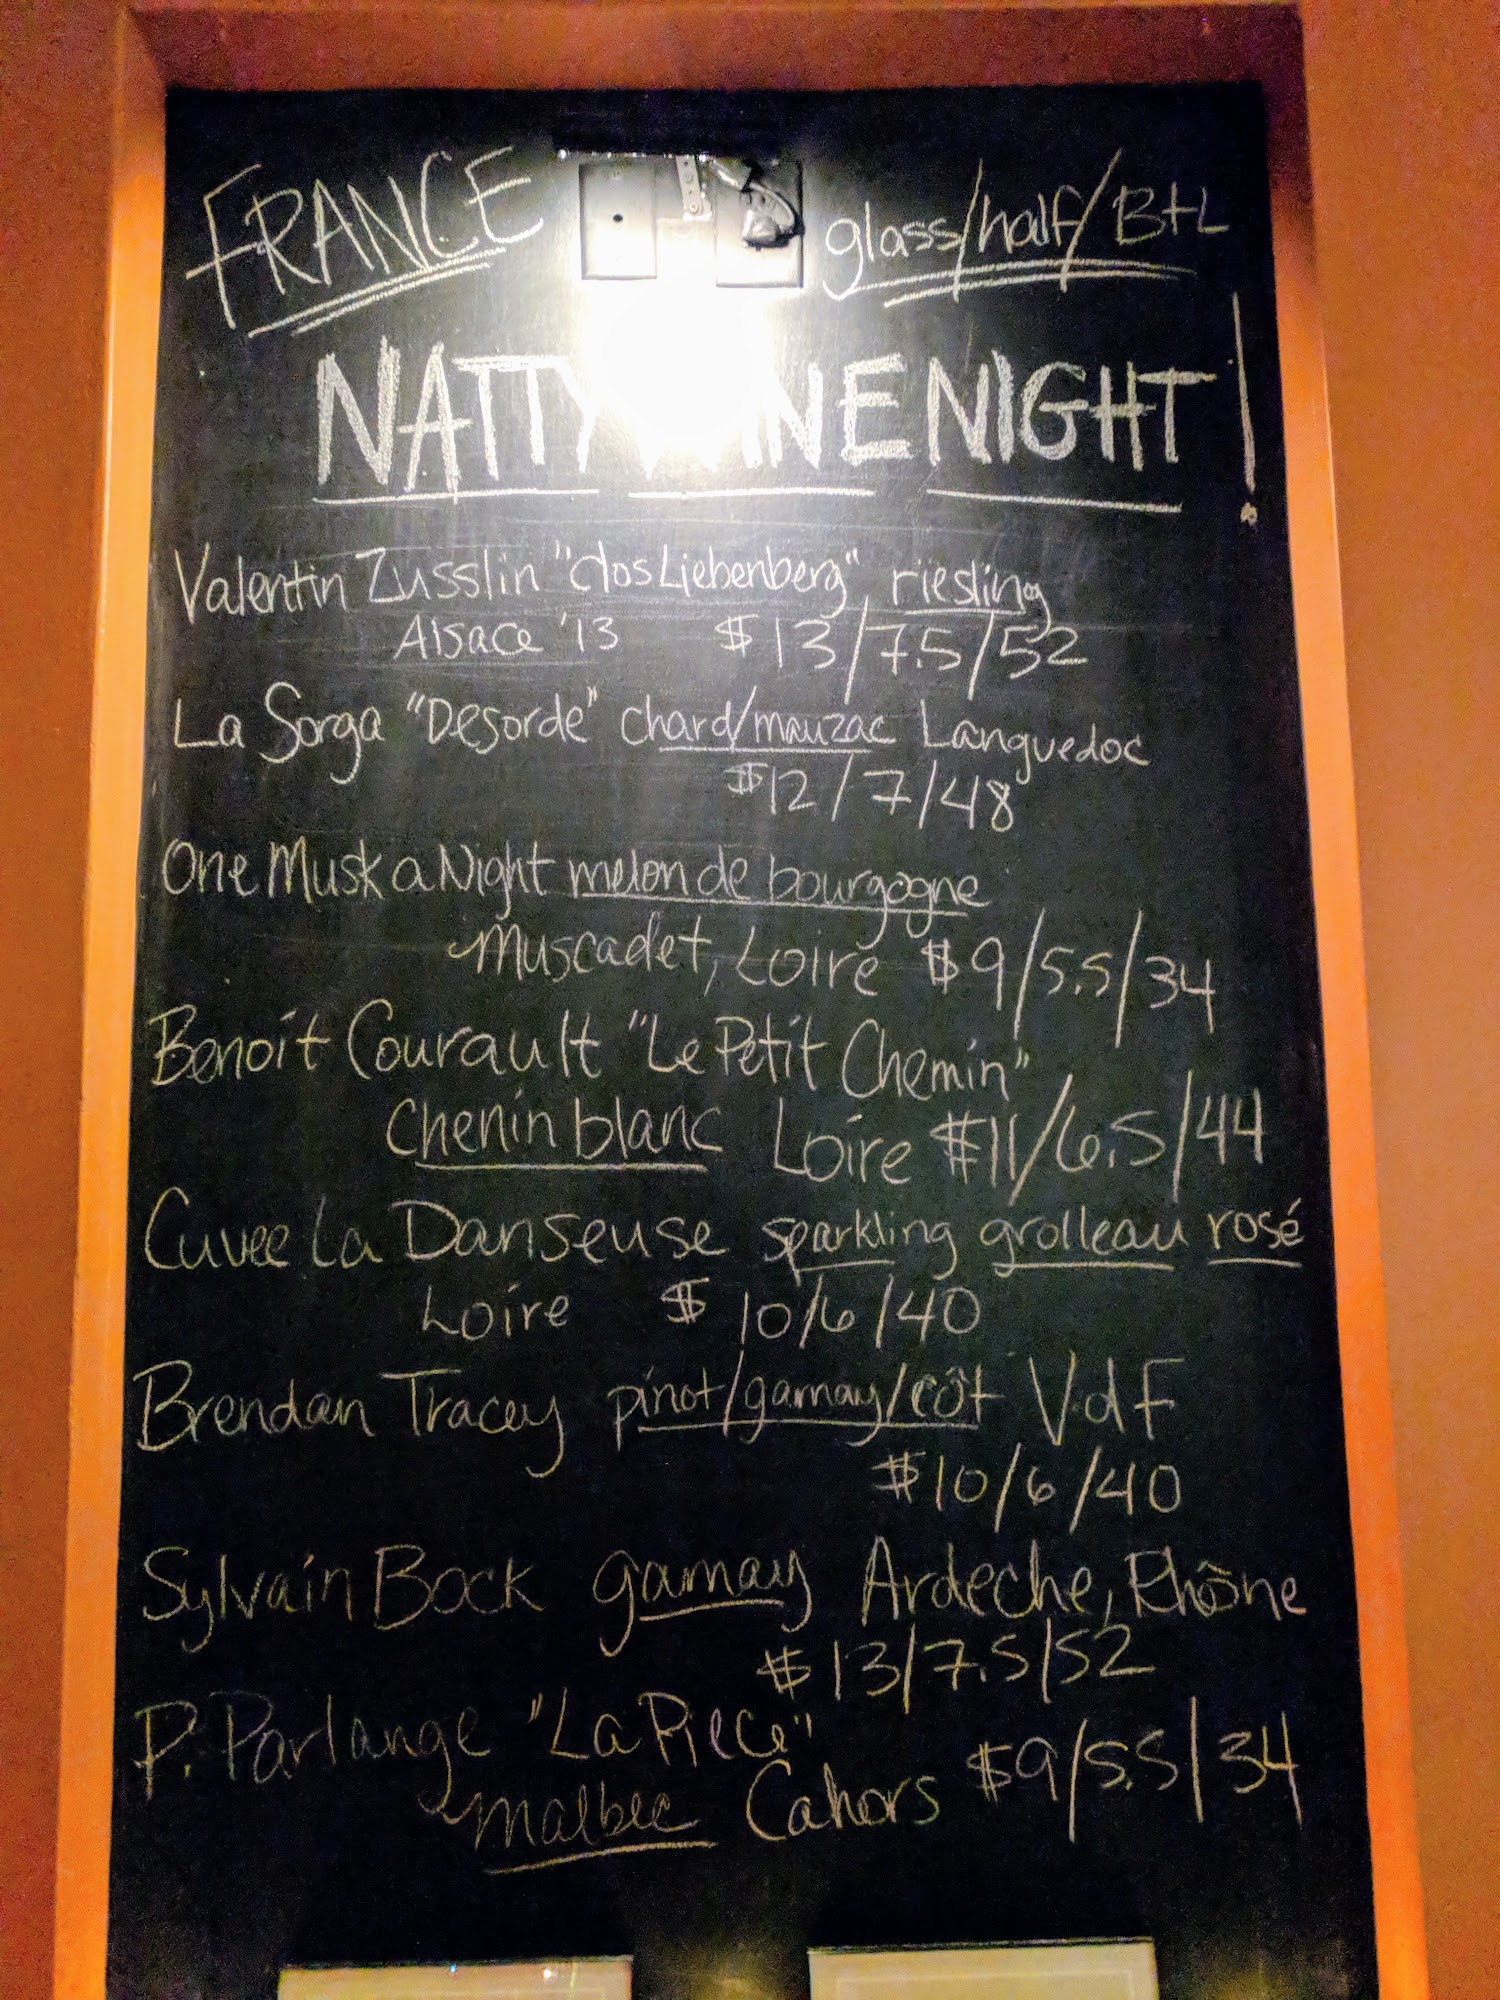 FRANCE glass/half/BtL
NATTY WINE NIGHT!
Valentin Zusslin "Clos Liebenberg" riesling
Alsace '13 $13/7.5/52
La Sorga "Desorde" chard/mauzac Languedoc
$12/7/48
One Musk a Night melon de bourgogne
Muscadet, Loire $9/5.5/34
Benoit Courault "Le Petit Chemin"
chenin blanc Loire $11/6.5/44
Cuvee La Danseuse sparkling grolleau rosé
Loire $10/6/40
Brendan Tracey pinot/gamay/côt VdF
$10/6/40
Sylvain Bock gamay Ardeche, Rhône
$13/7.5/52
P. Parlange "La Piece"
malbec Cahors $9/5.5/34